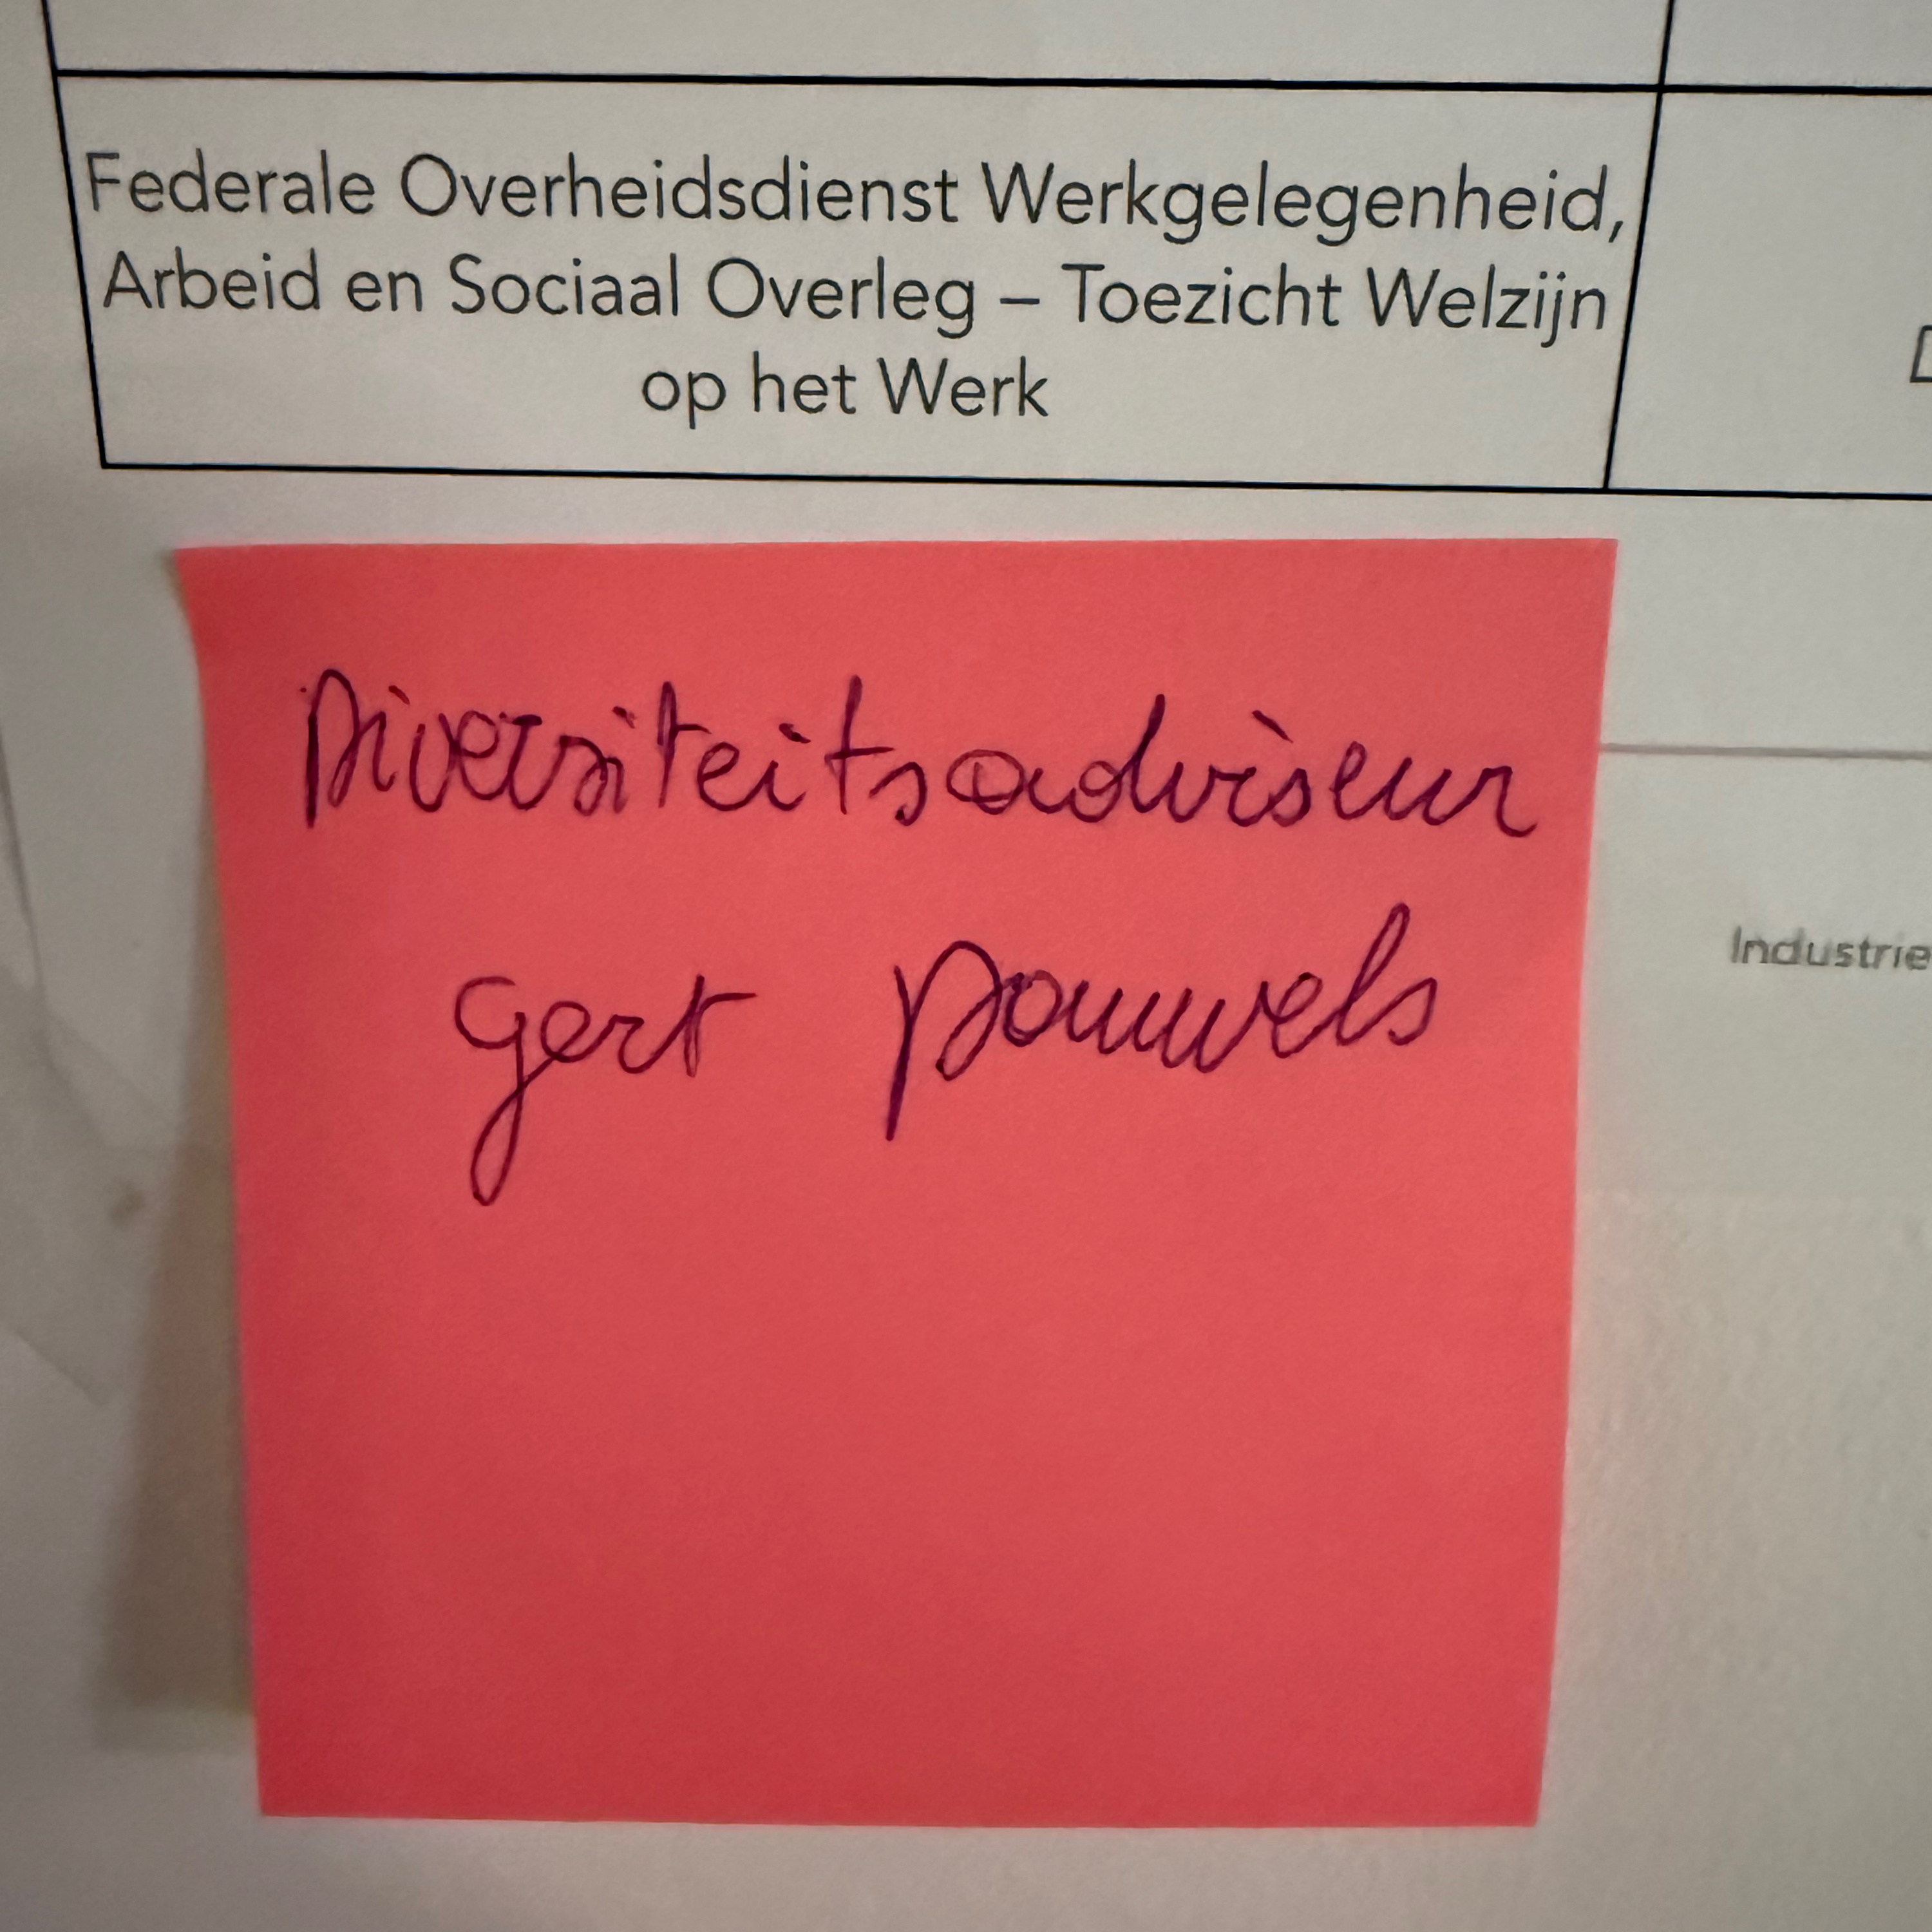 Federale Overheidsdienst Werkgelegenheid,
Arbeid en Sociaal Overleg – Toezicht Welzijn
op het Werk
Diversiteitsadviseur
gert pouwels
Industrie